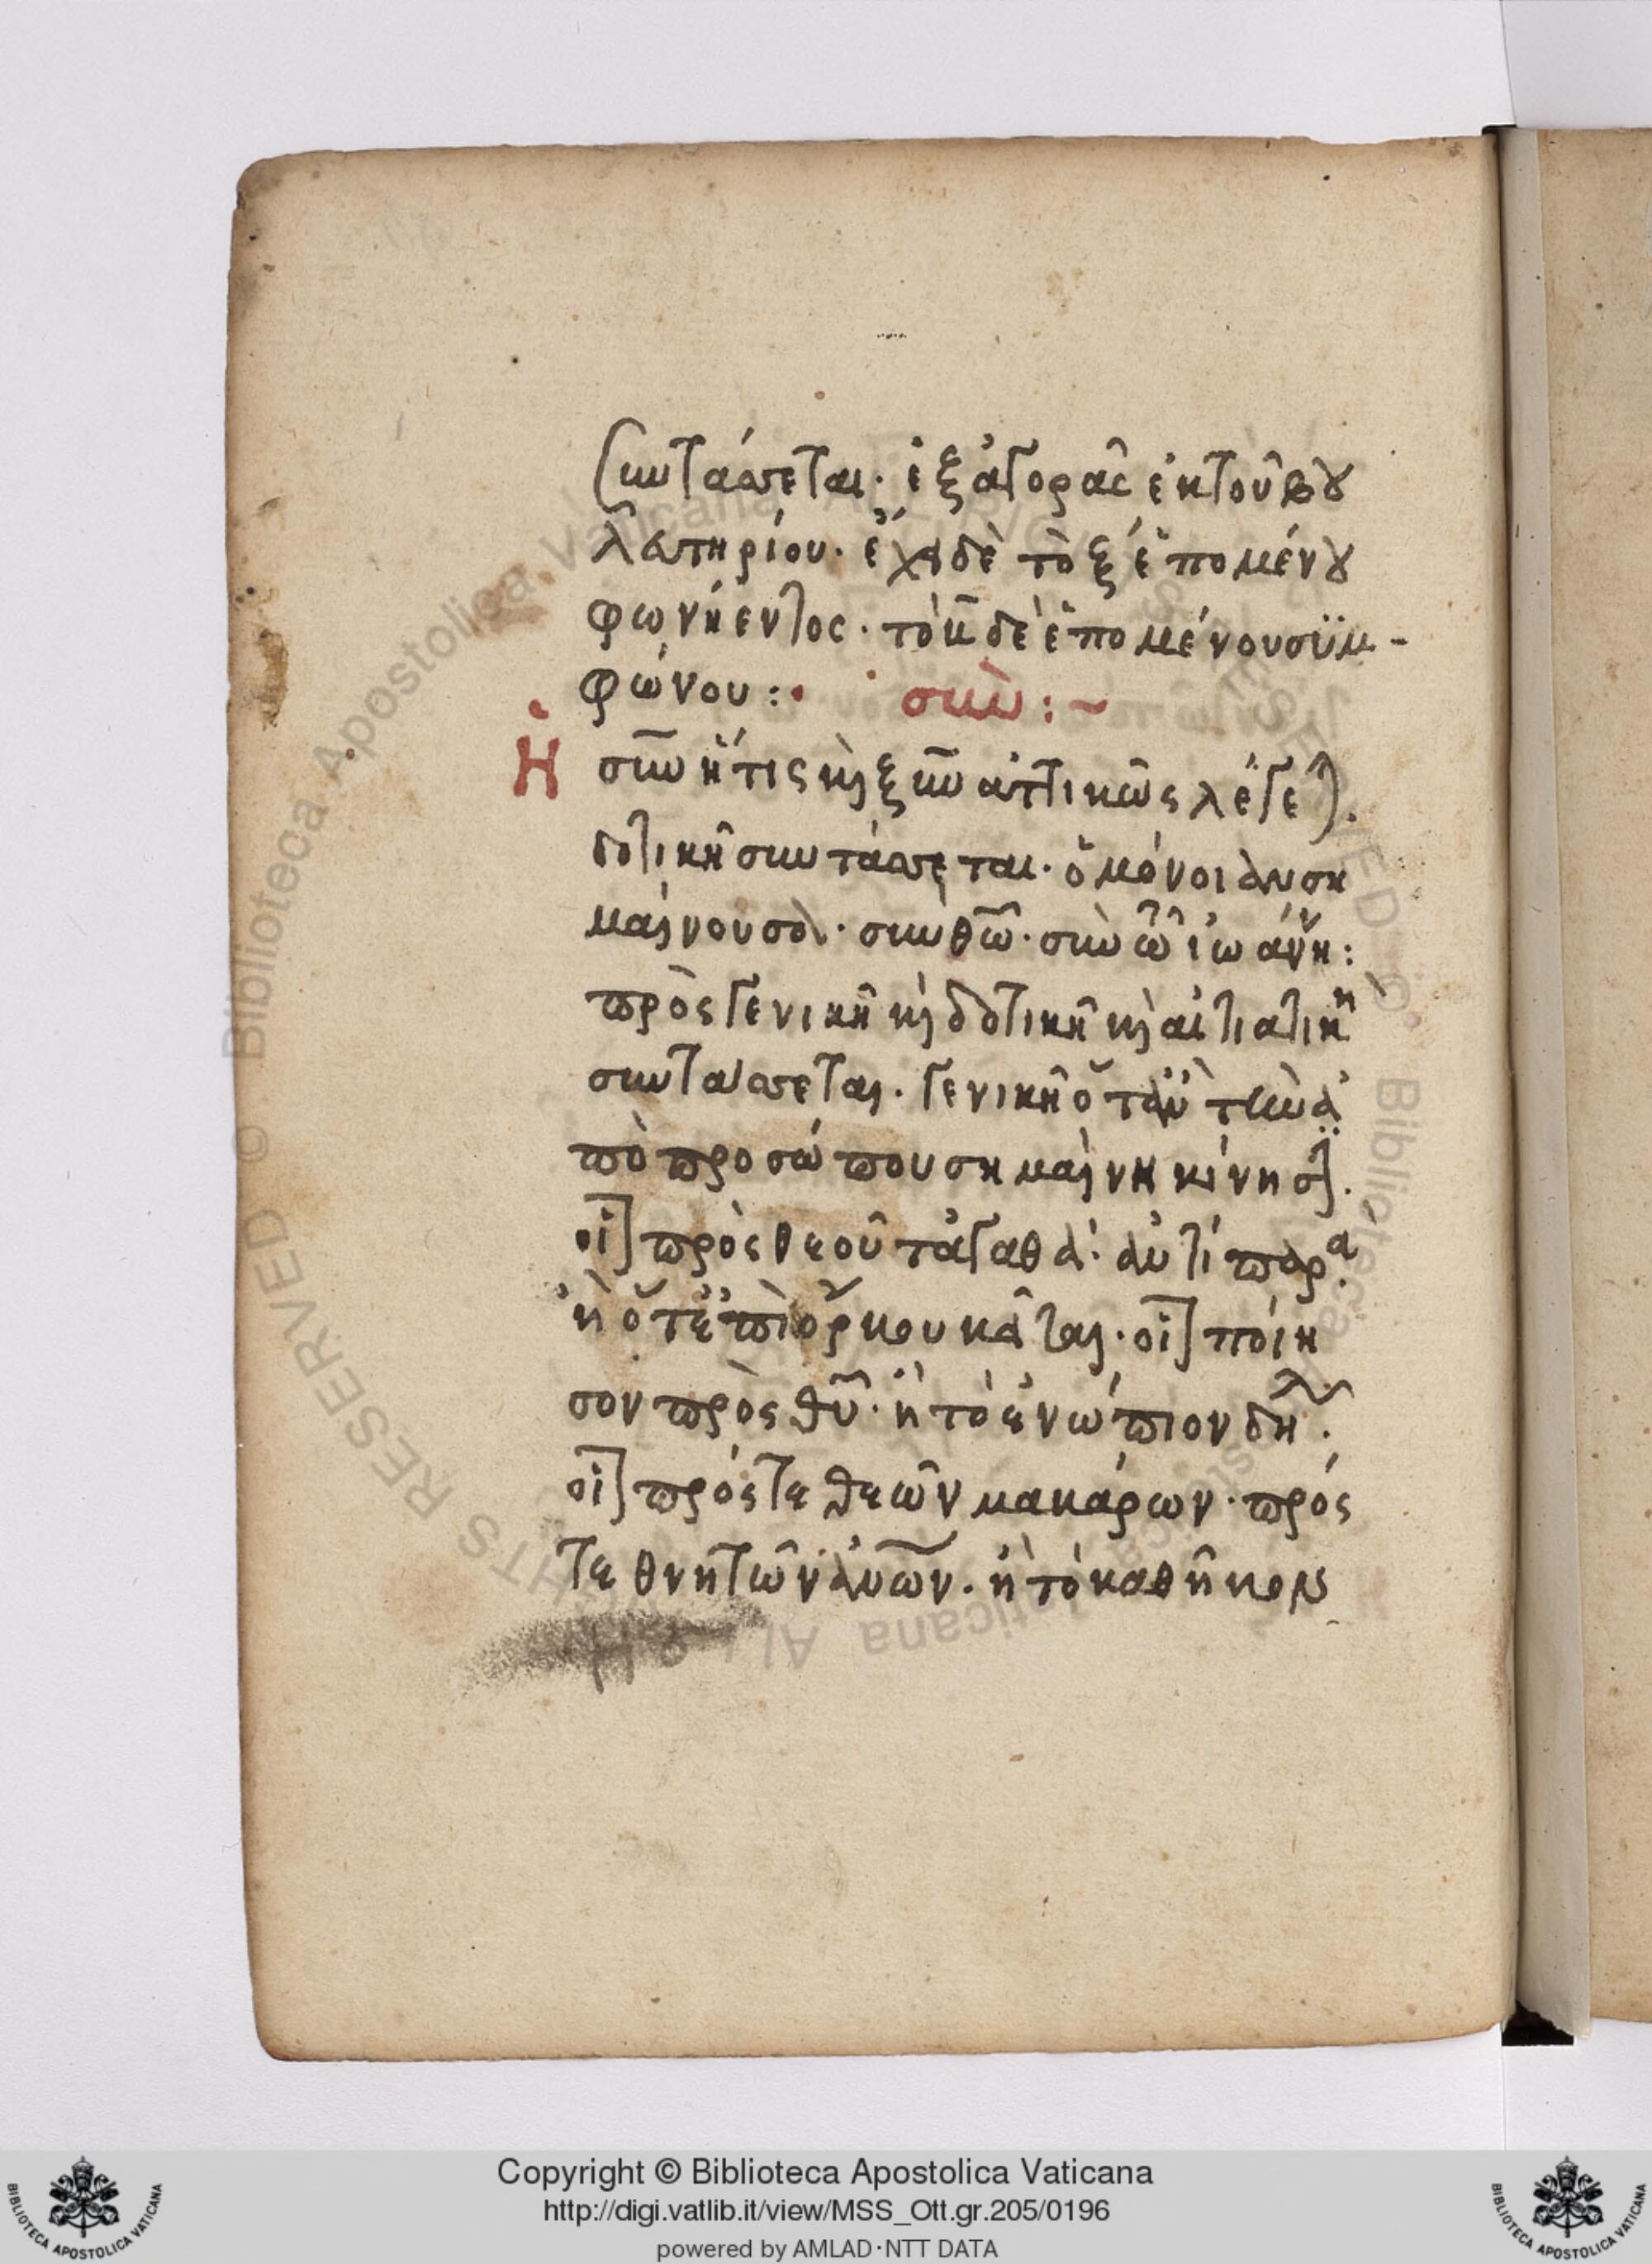 συντάσσεται· ἐξ ἀγορᾶς ἐκ τοῦ βου
λευτηρίου· ἔχει δὲ τὸ ξ ἑπομένου
φωνήεντος· τὸ κ δὲ ἑπομένου συμ-
φώνου:· σύν:~
Ἡ σὺν ἥτις καὶ ξὺν ἀττικῶς λέγεται.
δοτικῆ συντάσσεται· ὁμόνοιαν ση
μαίνουσα· σὺν θεῶ· σὺν τῶ ἰωάννη:
πρὸς γενικῆ καὶ δοτικῆ καὶ αἰτιατικῆ
συντάσσεται. γενικῆ ὅταν τὴν ἀ
πὸ προσώπου σημαίνη κίνησιν.
οἷον πρὸς θεοῦ τἀγαθά· ἀντὶ παρὰ
ἢ ὅτε ἐπὶ ὅρκου κεῖται· οἷον ποίη
σον πρὸς θεοῦ· ἢ τὸ ἐνώπιον δηλοῖ.
οἷον πρός τε θεῶν μακάρων· πρός
τε θνητῶν ἀνθρώπων. ἢ τὸ καθῆκον
Copyright © Biblioteca Apostolica Vaticana
http://digi.vatlib.it/view/MSS_Ott.gr.205/0196
powered by AMLAD·NTT DATA
BIBLIOTECA APOSTOLICA VATICANA
BIBLIOTECA APOSTOLICA VATICANA